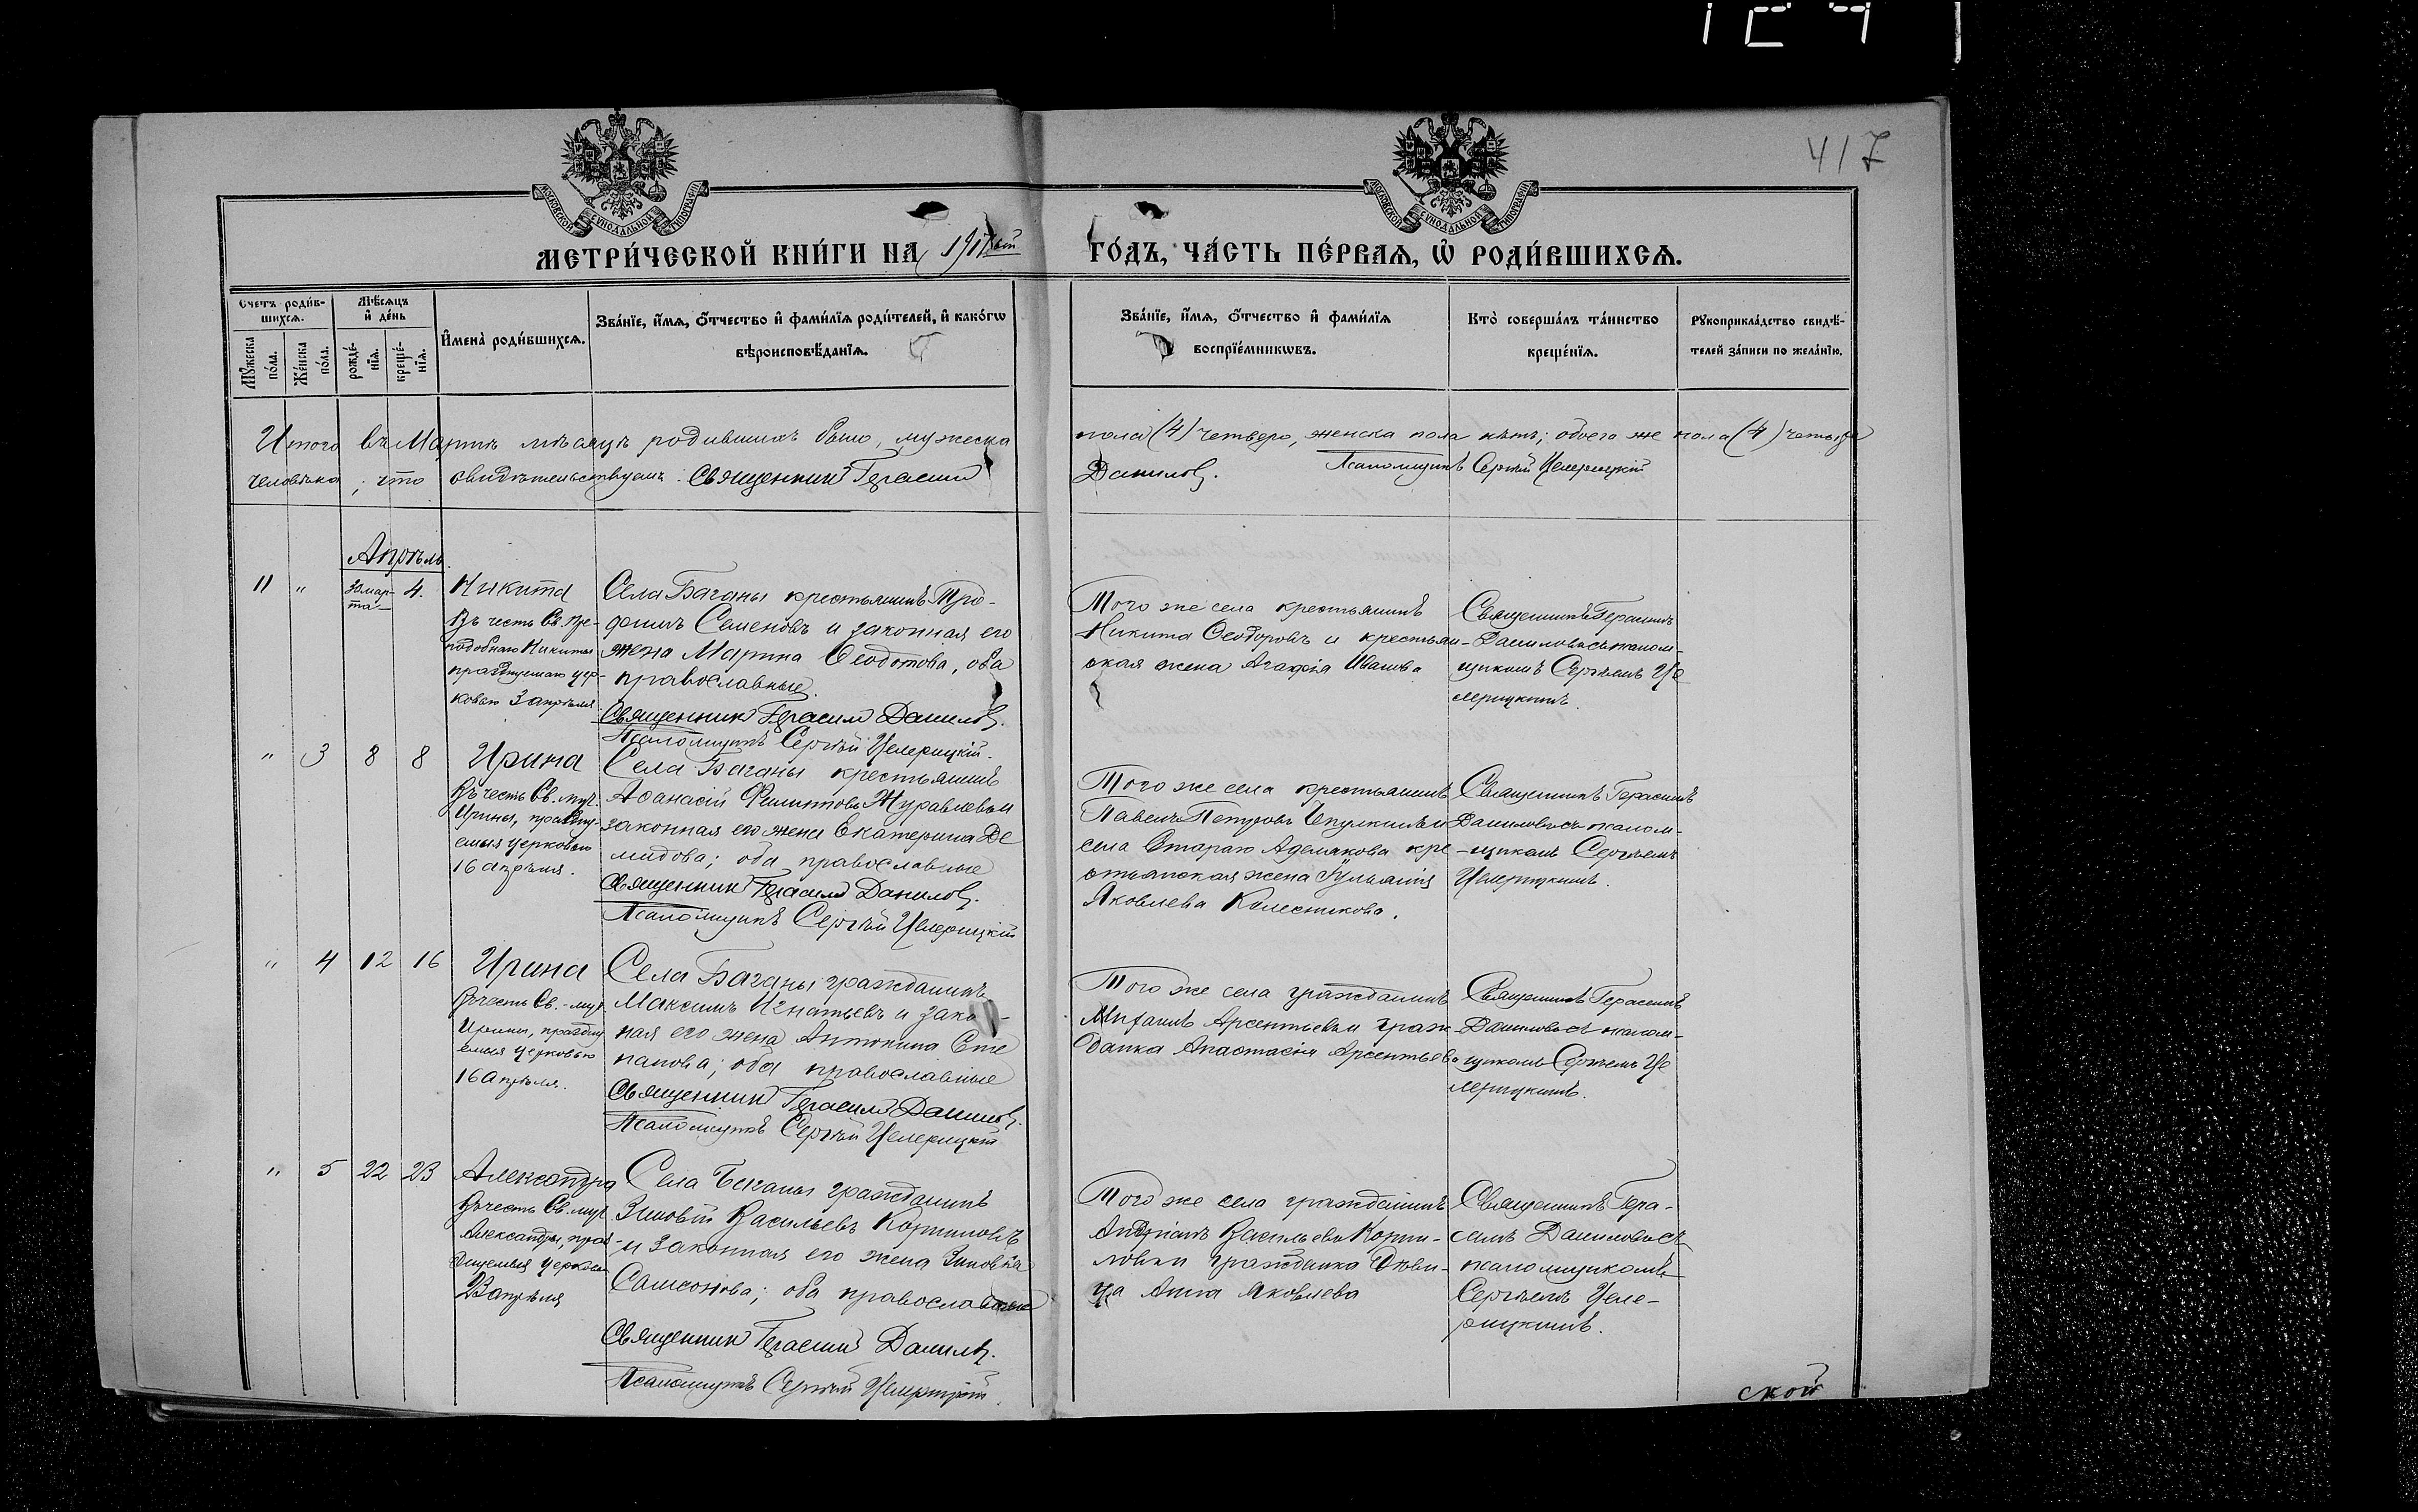 417
МОСКОВСКОЙ СУНОДАЛЬНОЙ ТИПОГРАФІИ
МОСКОВСКОЙ СУНОДАЛЬНОЙ ТИПОГРАФІИ
МЕТРИ́ЧЕСКОЙ КНИ́ГИ НА 1917ый ГО́ДЪ, ЧА́СТЬ ПЕ́РВАѦ, Ѡ҆ РОДИ́ВШИХСѦ.
Счетъ роди́вшихсѧ.
Мꙋжеска по́ла.
Же́нска по́ла.
Мѣ́сѧцъ и҆ де́нь
рожде́нїѧ.
креще́нїѧ.
И҆мена̀ роди́вшихсѧ.
Зва́нїе, и҆́мѧ, ѻ҆́тчество и҆ фами́лїѧ роди́телей, и҆ како́гѡ
вѣроисповѣ́данїѧ.
Зва́нїе, и҆́мѧ, ѻ҆́тчество и҆ фами́лїѧ
воспрїе́мникѡвъ.
Кто̀ соверша́лъ та́инство
креще́нїѧ.
Рꙋкоприкла́дство свидѣ́-
телей за́писи по жела́нїю.
Итого въ Мартѣ мѣсяцѣ родившихъ было, мужеска пола (4) четверо, женска пола нѣтъ; обоего же пола (4) четыре
человѣка; что свидѣтельствуемъ: Священникъ Герасим Данилов.
Псаломщикъ Сергѣй Целерицкій
Апрѣль.
11 " 30 мар-
та 4.
Никита
Въ честь Св. Пре-
подобнаго Никиты
празднуемаго цер-
ковью 3 апрѣля
Села Баганы крестьянинъ Тро-
фимъ Семеновъ и законная его
жена Марина Ѳеодотова, оба
православные.
Священник Герасим Данилов.
Псаломщикъ Сергѣй Целерицкій.
Того же села крестьянинъ
Никита Ѳеодоровъ и крестьян-
ская жена Агафія Иванова
Священникъ Герасимъ
Даниловъ съ псалом-
щикомъ Сергѣемъ Це
лерицкимъ.
" 3 8 8
Ирина
Въ честь Св. муч.
Ирины, празну-
емыя церковью
16 апрѣля.
Села Баганы крестьянинъ
Аѳанасій Филипповъ Журавлевъ и
законная его жена Екатерина Де
мидова; оба православные
Священник Герасим Данилов.
Псаломщикъ Сергѣй Целерицкій
Того же села крестьянинъ
Павелъ Петровъ и
села Стараго Адамкова кре
стьянская жена Іуліанія
Яковлева Колесникова.
Священникъ Герасимъ
Даниловъ съ псалом-
щикомъ Сергѣемъ
Целерицкимъ.
" 4 12 16
Ирина
Въ честь Св. муч.
Ирины, праздну
емыя церковью
16 Апрѣля.
Села Баганы гражданинъ
Максимъ Игнатьевъ и зако-
ная его жена Антонина Сте
панова; оба православные
Священник Герасим Данилов.
Псаломщикъ Сергѣй Целерицкій
Того же села гражданинъ
Михаилъ Арсентьевъ и граж-
данка Анастасія Арсентьева
Священникъ Герасимъ
Даниловъ съ псалом-
щикомъ Сергѣемъ Це
лерицкимъ.
" 5 22 23
Александра
Въ честь Св. муч.
Александры, праз-
днуемыя церковью
23 апрѣля
Села Баганы гражданинъ
Зиновій Васильевъ Корниловъ
и законная его жена Зиновія
Самсонова; оба православные
Священник Герасим Данилов.
Псаломщикъ Сергѣй Целерицкій.
Того же села гражданинъ
Андріанъ Васильевъ Корни-
ловъ и гражданка дѣви-
ца Анна Яковлева
Священникъ Гера-
симъ Даниловъ съ
псаломщикомъ
Сергѣемъ Целе-
рицкимъ.
ской